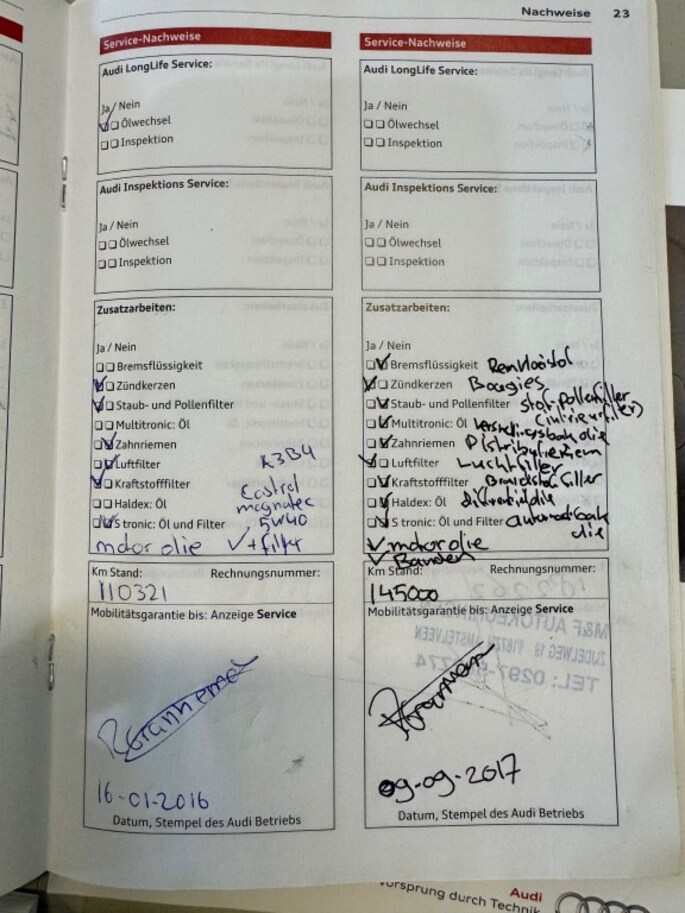 Nachweise 23
Service-Nachweise
Audi LongLife Service:
Ja / Nein
Ölwechsel
Inspektion
Audi Inspektions Service:
Ja / Nein
Ölwechsel
Inspektion
Zusatzarbeiten:
Ja / Nein
Bremsflüssigkeit
Zündkerzen
Staub- und Pollenfilter
Multitronic: Öl
Zahnriemen
Luftfilter
Kraftstofffilter
Haldex: Öl
S tronic: Öl und Filter
K3B4
Castrol
magnatec
5W40
motor olie + filter
Km Stand: Rechnungsnummer:
110321
Mobilitätsgarantie bis: Anzeige Service
16-01-2016
Datum, Stempel des Audi Betriebs
Service-Nachweise
Audi LongLife Service:
Ja / Nein
Ölwechsel
Inspektion
Audi Inspektions Service:
Ja / Nein
Ölwechsel
Inspektion
Zusatzarbeiten:
Ja / Nein
Bremsflüssigkeit Remvloeistof
Zündkerzen Bougies
Staub- und Pollenfilter stof-Pollenfilter
Multitronic: Öl
Zahnriemen Distributieriem
Luftfilter Luchtfilter
Kraftstofffilter Brandstoffilter
Haldex: Öl
S tronic: Öl und Filter
olie
motor olie
Banden
Km Stand: Rechnungsnummer:
145000
Mobilitätsgarantie bis: Anzeige Service
M&F AUTOKEURINGEN
ZIJDELWEG
AMSTELVEEN
TEL: 0297
09-09-2017
Datum, Stempel des Audi Betriebs
Audi
Vorsprung durch Technik